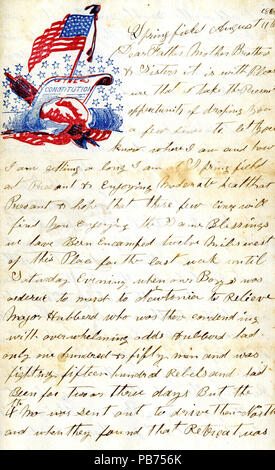 Springfield August 11th
186
CONSTITUTION
Dear Father Mother Brothers
& Sisters it is with Pleas
ure that I take the Present
opportunity of droping you
a few lines to let you
know where I am and how
I am getting a long I am at Springfield
at Present & Enjoying Moderate health at
Present & hope that these few lines will
find you enjoying the Same Blessings
we have Been Encamped twelve Miles west
of this Place for the last week until
Saturday Evening when our Boys was
ordered to march to Newtonia to Relieve
Major Hubbard who was there contending
with overwhelming odds Hubbard had
only one hundred & fifty men and was
fighting fifteen hundred Rebels and had
Been for two or three days But the
4th Mo was sent out to drive them
and when they found that Retreat was
alamy
Image ID: PB756K
www.alamy.com